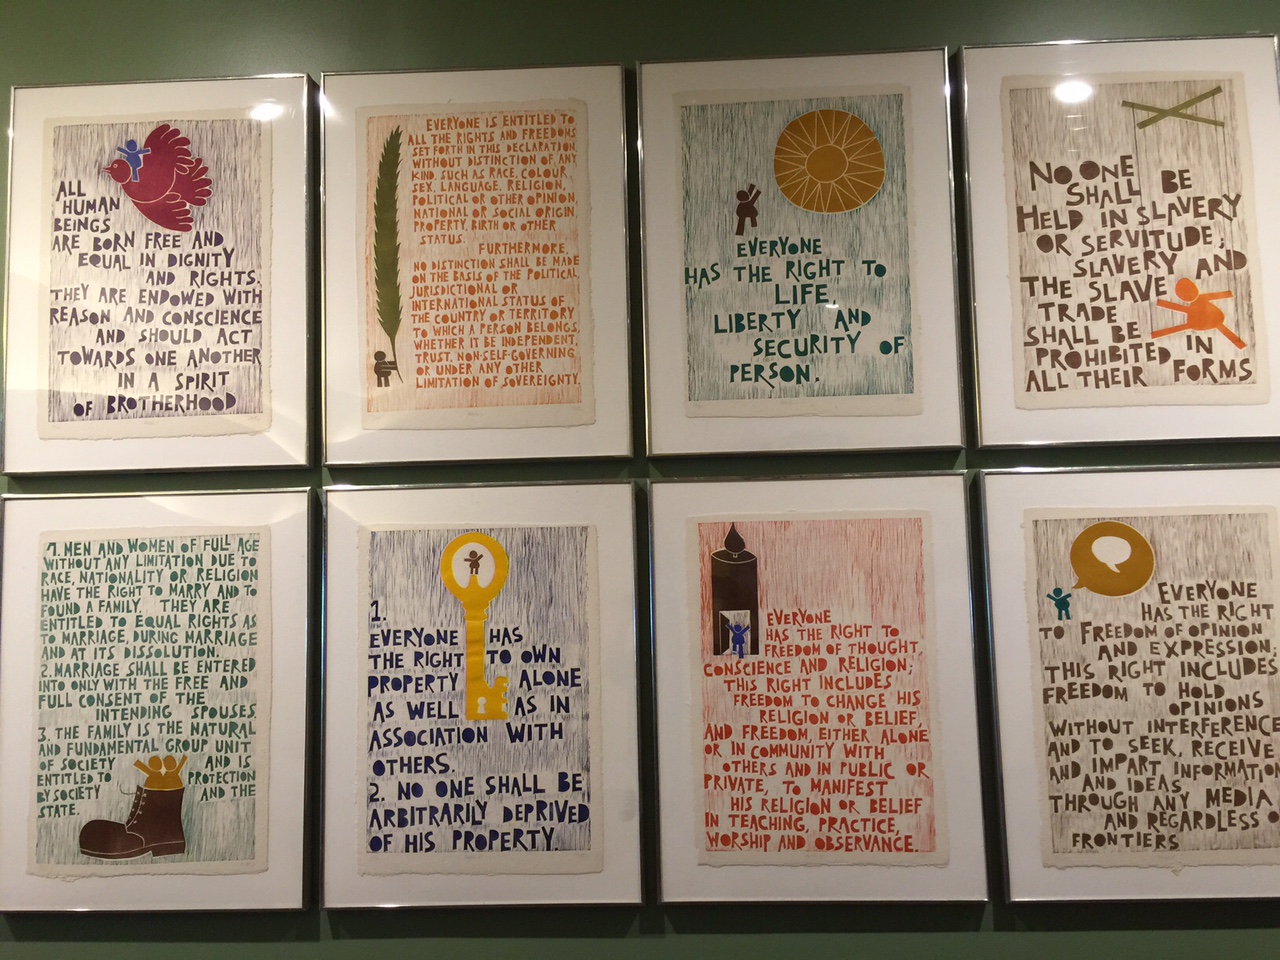 ALL
HUMAN
BEINGS
ARE BORN FREE AND
EQUAL IN DIGNITY
AND RIGHTS.
THEY ARE ENDOWED WITH
REASON AND CONSCIENCE
AND SHOULD ACT
TOWARDS ONE ANOTHER
IN A SPIRIT
OF BROTHERHOOD
EVERYONE IS ENTITLED TO
ALL THE RIGHTS AND FREEDOMS
SET FORTH IN THIS DECLARATION,
WITHOUT DISTINCTION OF ANY
KIND, SUCH AS RACE, COLOUR,
SEX, LANGUAGE, RELIGION,
POLITICAL OR OTHER OPINION,
NATIONAL OR SOCIAL ORIGIN,
PROPERTY, BIRTH OR OTHER
STATUS.
FURTHERMORE,
NO DISTINCTION SHALL BE MADE
ON THE BASIS OF THE POLITICAL,
JURISDICTIONAL OR
INTERNATIONAL STATUS OF
THE COUNTRY OR TERRITORY
TO WHICH A PERSON BELONGS,
WHETHER IT BE INDEPENDENT,
TRUST, NON-SELF-GOVERNING
OR UNDER ANY OTHER
LIMITATION OF SOVEREIGNTY.
EVERYONE
HAS THE RIGHT TO
LIFE
LIBERTY AND
SECURITY OF
PERSON.
NO ONE
SHALL BE
HELD IN SLAVERY
OR SERVITUDE;
SLAVERY AND
THE SLAVE
TRADE
SHALL BE
PROHIBITED IN
ALL THEIR FORMS
1. MEN AND WOMEN OF FULL AGE
WITHOUT ANY LIMITATION DUE TO
RACE, NATIONALITY OR RELIGION
HAVE THE RIGHT TO MARRY AND TO
FOUND A FAMILY. THEY ARE
ENTITLED TO EQUAL RIGHTS AS
TO MARRIAGE, DURING MARRIAGE
AND AT ITS DISSOLUTION.
2. MARRIAGE SHALL BE ENTERED
INTO ONLY WITH THE FREE AND
FULL CONSENT OF THE
INTENDING SPOUSES.
3. THE FAMILY IS THE NATURAL
AND FUNDAMENTAL GROUP UNIT
OF SOCIETY AND IS
ENTITLED TO PROTECTION
BY SOCIETY AND THE
STATE.
1.
EVERYONE HAS
THE RIGHT TO OWN
PROPERTY ALONE
AS WELL AS IN
ASSOCIATION WITH
OTHERS.
2. NO ONE SHALL BE
ARBITRARILY DEPRIVED
OF HIS PROPERTY.
EVERYONE
HAS THE RIGHT TO
FREEDOM OF THOUGHT,
CONSCIENCE AND RELIGION;
THIS RIGHT INCLUDES
FREEDOM TO CHANGE HIS
RELIGION OR BELIEF,
AND FREEDOM, EITHER ALONE
OR IN COMMUNITY WITH
OTHERS AND IN PUBLIC OR
PRIVATE, TO MANIFEST
HIS RELIGION OR BELIEF
IN TEACHING, PRACTICE,
WORSHIP AND OBSERVANCE.
EVERYONE
HAS THE RIGHT
TO FREEDOM OF OPINION
AND EXPRESSION;
THIS RIGHT INCLUDES
FREEDOM TO HOLD
OPINIONS
WITHOUT INTERFERENCE
AND TO SEEK, RECEIVE
AND IMPART INFORMATION
AND IDEAS,
THROUGH ANY MEDIA
AND REGARDLESS O
FRONTIERS